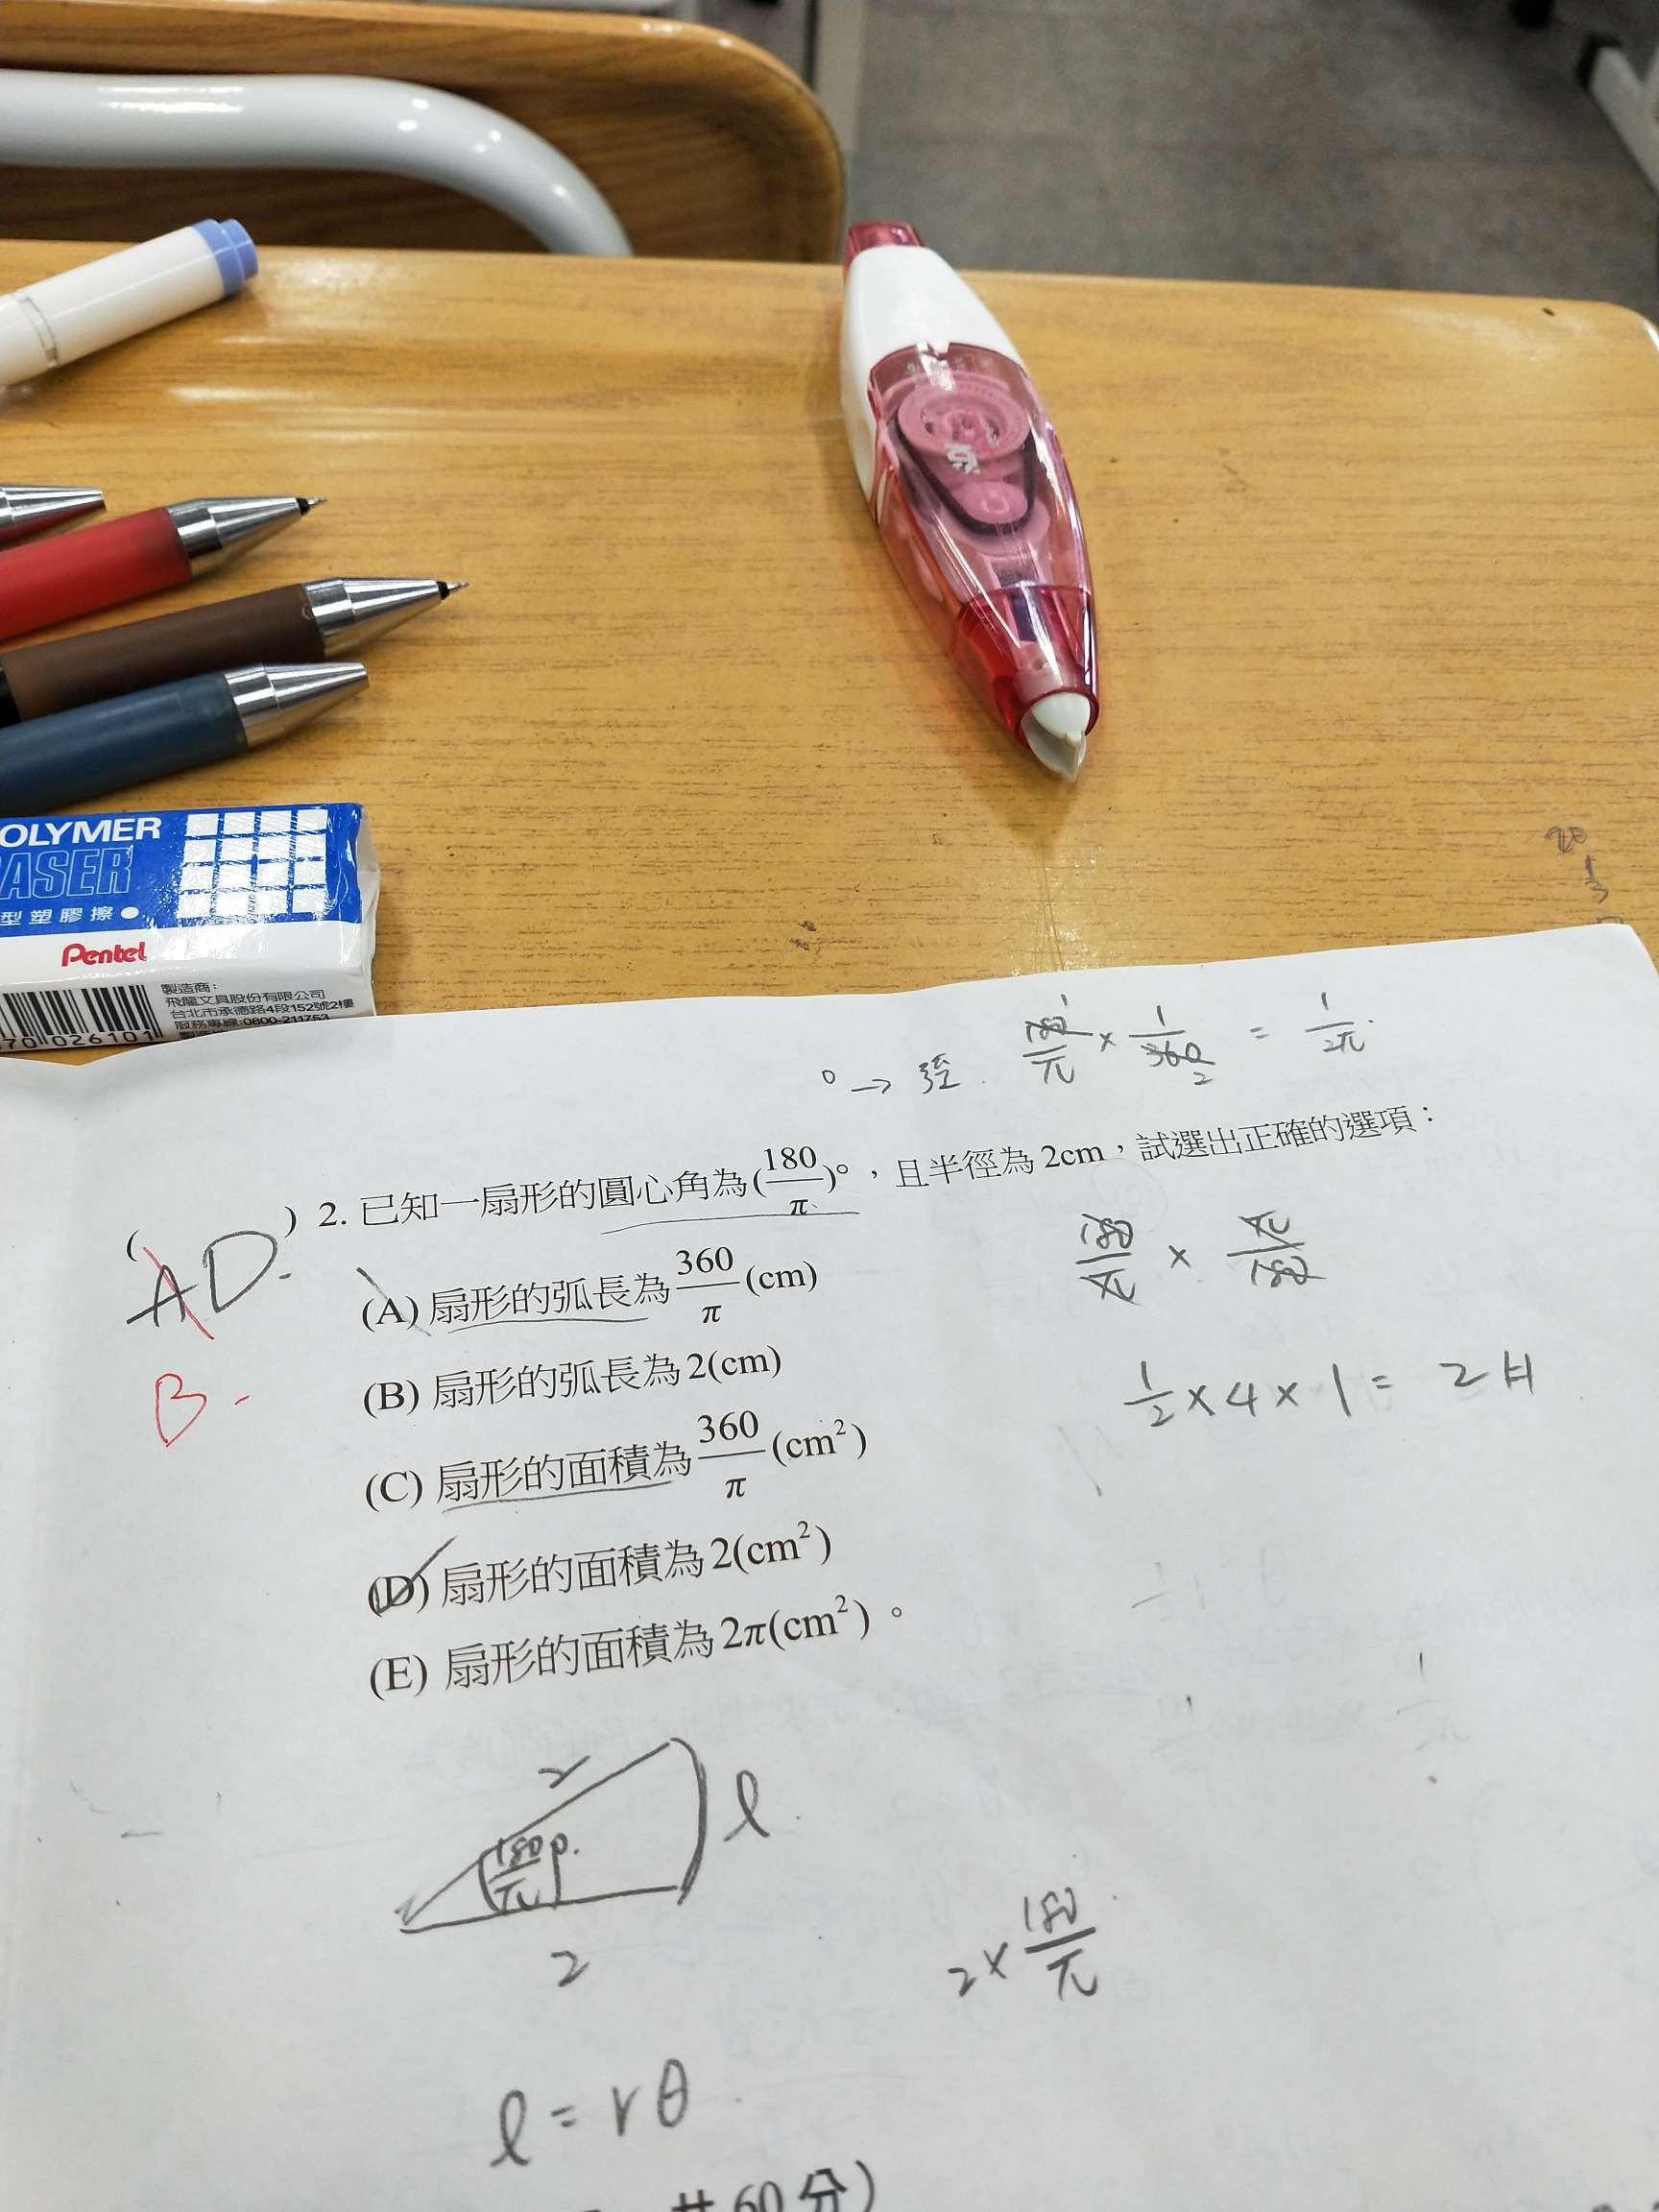 OLYMER
ASER
型塑膠擦
Pentel
製造商:
飛龍文具股份有限公司
台北市承德路4段152號2樓
服務專線:0800-211753
70 026101
° → 弳. 180/π × 1/360 = 1/2π.
1
2
( AD. ) 2. 已知一扇形的圓心角為(180/π)°,且半徑為2cm,試選出正確的選項:
B.
(A) 扇形的弧長為360/π(cm)
(B) 扇形的弧長為2(cm)
(C) 扇形的面積為360/π(cm²)
(D) 扇形的面積為2(cm²)
(E) 扇形的面積為2π(cm²)。
180/π × π/180
1/2 × 4 × 1 = 2
2
180/π
l
2
2 × 180/π
l = rθ
共60分)